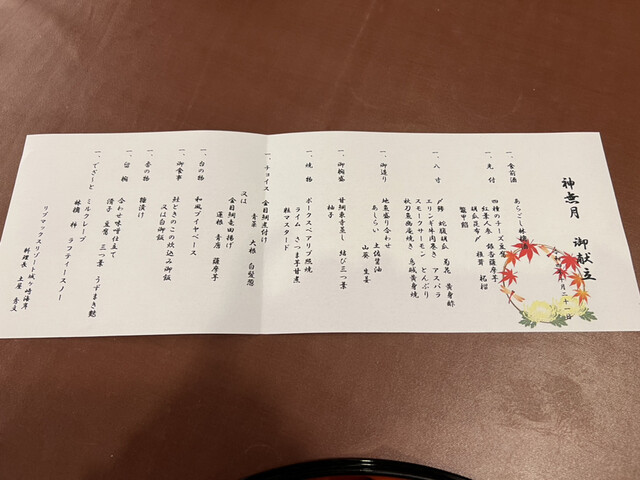 神無月 御献立
一、食前酒
あらごし林檎酒
一、先付
四種のチーズ豆腐
紅葉人参 銀杏薩摩芋
胡瓜昆布〆 椎茸
鼈甲餡
一、八寸
〆鯖 蛇腹胡瓜 菊花 黄身酢
エリンギ牛肉巻き アスパラ
スモークサーモン とんぶり
秋刀魚幽庵焼き 烏賊黄身焼
一、御造り
地魚盛り合わせ
あしらい 土佐醤油
山葵 生姜
一、御椀盛
甘鯛東寺蒸し 結び三つ葉
柚子
一、焼物
ポークスペアリブ味噌焼
ライム さつま芋甘煮
粒マスタード
一、チョイス 金目鯛煮付け
青菜 大根 白髪葱
又は
金目鯛竜田揚げ
蓮根 青唐 薩摩芋
一、台の物
和風ブイヤベース
一、御食事
鮭ときのこの炊込み御飯
又は白御飯
一、香の物
糠漬け
一、留椀
合わせ味噌仕立て
滑子 豆腐 三つ葉 うずまき麩
一、でざーと
ミルクレープ
林檎 柿 ラフティースノー
リブマックスリゾート城ヶ崎海岸
料理長 土屋